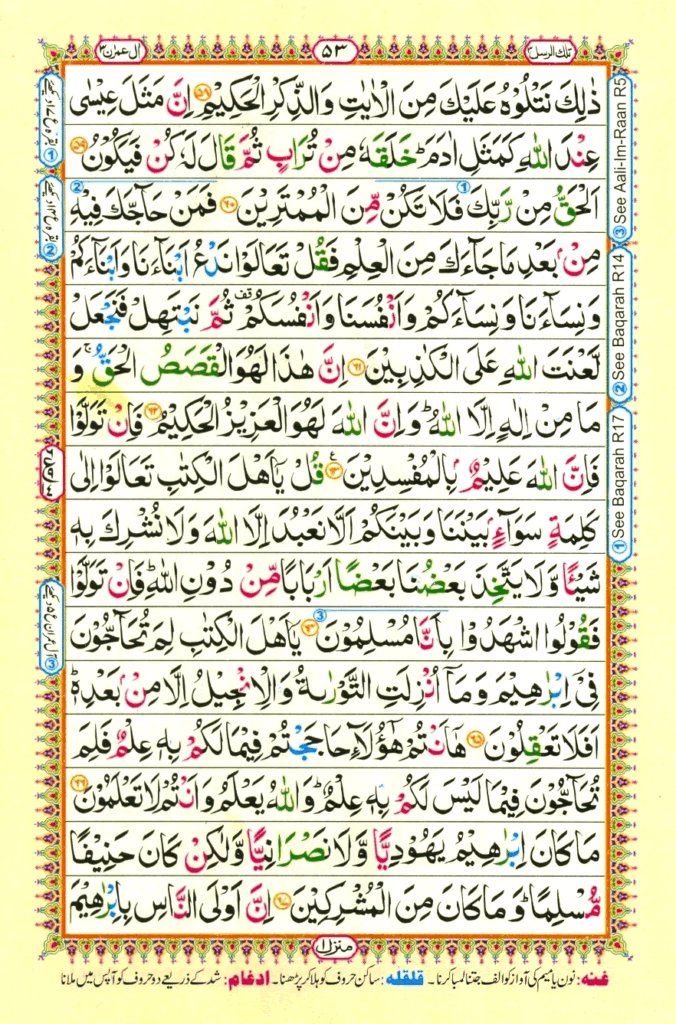 تلك الرسل ٣
٥٣
ال عمرٰن ٣
ذٰلِكَ نَتْلُوْهُ عَلَيْكَ مِنَ الْاٰيٰتِ وَالذِّكْرِ الْحَكِيْمِ ﴿۵۸﴾ اِنَّ مَثَلَ عِيْسٰى
عِنْدَ اللّٰهِ كَمَثَلِ اٰدَمَ ؕ خَلَقَهٗ مِنْ تُرَابٍ ثُمَّ قَالَ لَهٗ كُنْ فَيَكُوْنُ ﴿۵۹﴾
اَلْحَقُّ مِنْ رَّبِّكَ فَلَا تَكُنْ مِّنَ الْمُمْتَرِيْنَ ﴿۶۰﴾ فَمَنْ حَآجَّكَ فِيْهِ
مِنْۢ بَعْدِ مَا جَآءَكَ مِنَ الْعِلْمِ فَقُلْ تَعَالَوْا نَدْعُ اَبْنَآءَنَا وَاَبْنَآءَكُمْ
وَنِسَآءَنَا وَنِسَآءَكُمْ وَاَنْفُسَنَا وَاَنْفُسَكُمْ ۫ ثُمَّ نَبْتَهِلْ فَنَجْعَلْ
لَّعْنَتَ اللّٰهِ عَلَى الْكٰذِبِيْنَ ﴿۶۱﴾ اِنَّ هٰذَا لَهُوَ الْقَصَصُ الْحَقُّ ۚ وَ
مَا مِنْ اِلٰهٍ اِلَّا اللّٰهُ ؕ وَاِنَّ اللّٰهَ لَهُوَ الْعَزِيْزُ الْحَكِيْمُ ﴿۶۲﴾ فَاِنْ تَوَلَّوْا
فَاِنَّ اللّٰهَ عَلِيْمٌۢ بِالْمُفْسِدِيْنَ ﴿۶۳﴾ قُلْ يٰۤاَهْلَ الْكِتٰبِ تَعَالَوْا اِلٰى
كَلِمَةٍ سَوَآءٍۢ بَيْنَنَا وَبَيْنَكُمْ اَلَّا نَعْبُدَ اِلَّا اللّٰهَ وَلَا نُشْرِكَ بِهٖ
شَيْـًٔا وَّلَا يَتَّخِذَ بَعْضُنَا بَعْضًا اَرْبَابًا مِّنْ دُوْنِ اللّٰهِ ؕ فَاِنْ تَوَلَّوْا
فَقُوْلُوا اشْهَدُوْا بِاَنَّا مُسْلِمُوْنَ ﴿۶۴﴾ يٰۤاَهْلَ الْكِتٰبِ لِمَ تُحَآجُّوْنَ
فِىْۤ اِبْرٰهِيْمَ وَمَاۤ اُنْزِلَتِ التَّوْرٰىةُ وَالْاِنْجِيْلُ اِلَّا مِنْۢ بَعْدِهٖ ؕ
اَفَلَا تَعْقِلُوْنَ ﴿۶۵﴾ هٰۤاَنْتُمْ هٰٓؤُلَآءِ حَاجَجْتُمْ فِيْمَا لَكُمْ بِهٖ عِلْمٌ فَلِمَ
تُحَآجُّوْنَ فِيْمَا لَيْسَ لَكُمْ بِهٖ عِلْمٌ ؕ وَاللّٰهُ يَعْلَمُ وَاَنْتُمْ لَا تَعْلَمُوْنَ ﴿۶۶﴾
مَا كَانَ اِبْرٰهِيْمُ يَهُوْدِيًّا وَّلَا نَصْرَانِيًّا وَّلٰكِنْ كَانَ حَنِيْفًا
مُّسْلِمًا ؕ وَمَا كَانَ مِنَ الْمُشْرِكِيْنَ ﴿۶۷﴾ اِنَّ اَوْلَى النَّاسِ بِاِبْرٰهِيْمَ
③ See Aali-Im-Raan R5
② See Baqarah R14
① See Baqarah R17
منزل ١
غنه: نون یا میم کی آواز کو الف جتنا لمبا کرنا۔ قلقله: ساکن حروف کو ہلا کر پڑھنا۔ ادغام: شد کے ذریعے دو حروف کو آپس میں ملانا